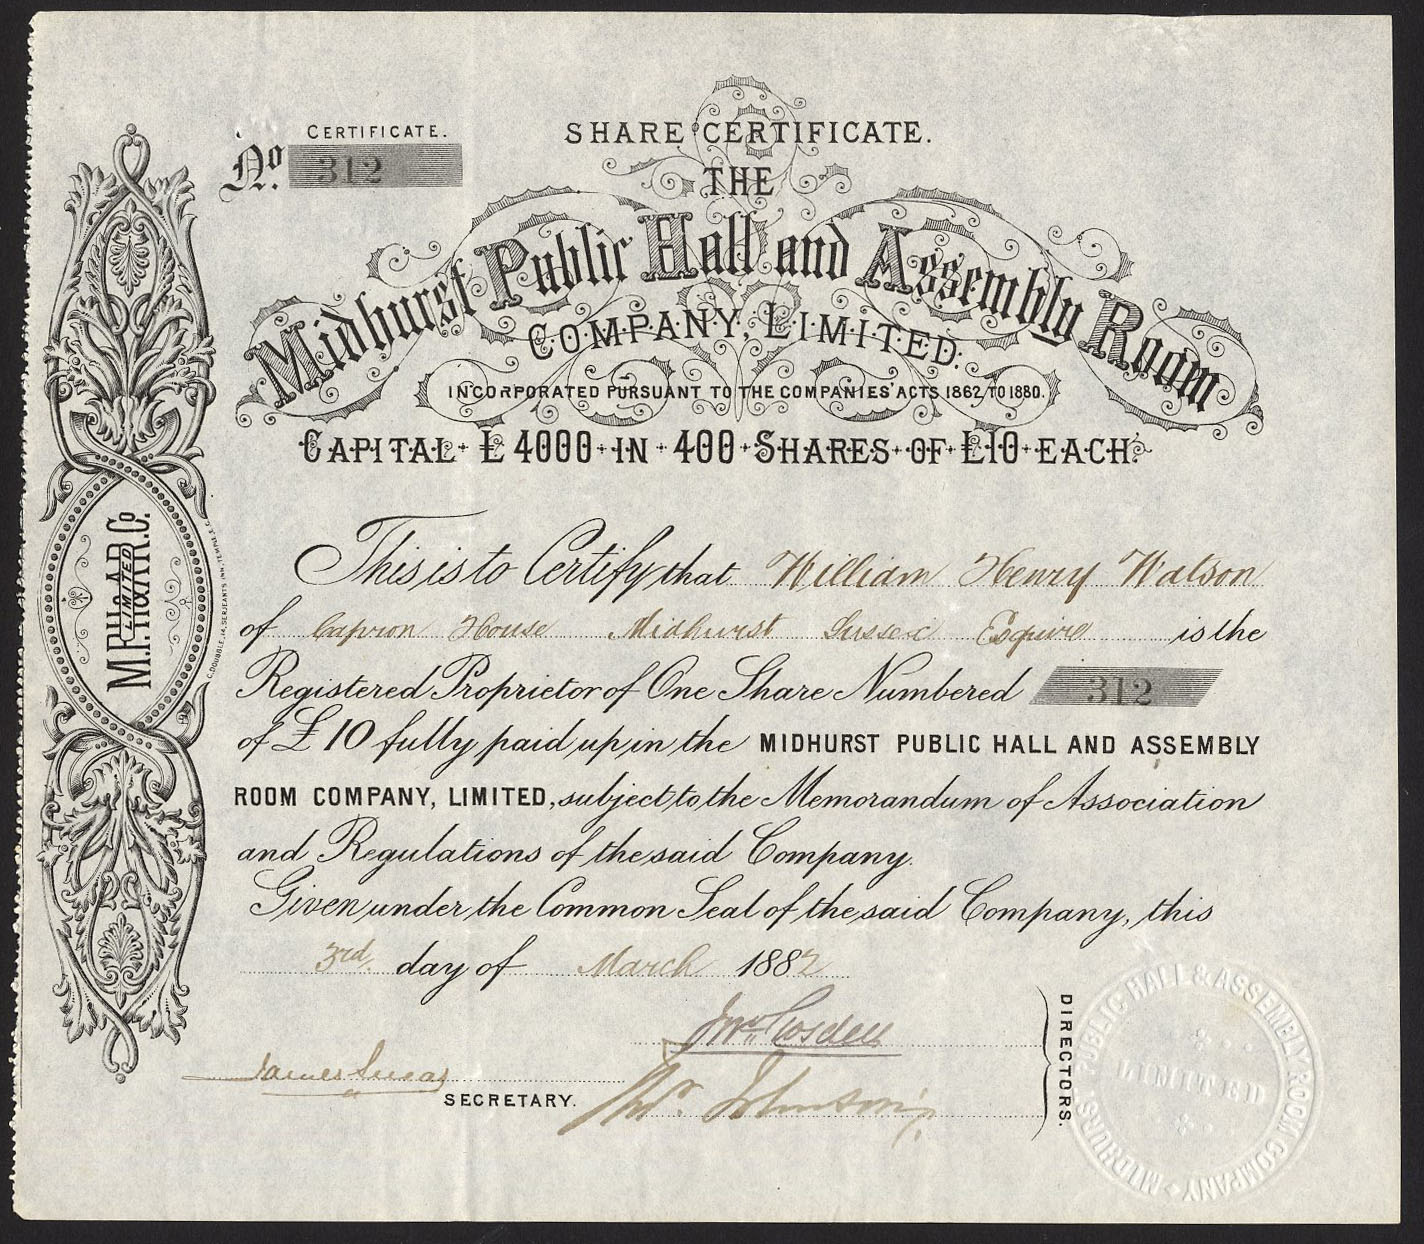 CERTIFICATE.
No. 312
SHARE CERTIFICATE.
THE
Midhurst Public Hall and Assembly Room
COMPANY, LIMITED.
INCORPORATED PURSUANT TO THE COMPANIES' ACTS 1862 TO 1880.
CAPITAL £4000 IN 400 SHARES OF £10 EACH.
M.P.H.&A.R.Co.
LIMITED
This is to Certify that William Henry Watson
of Capron House Midhurst Sussex Esquire is the
Registered Proprietor of One Share Numbered 312
of £10 fully paid up in the MIDHURST PUBLIC HALL AND ASSEMBLY
ROOM COMPANY, LIMITED, subject to the Memorandum of Association
and Regulations of the said Company.
Given under the Common Seal of the said Company, this
3rd. day of March 1882
James Lucas
SECRETARY.
DIRECTORS.
MIDHURST PUBLIC HALL & ASSEMBLY ROOM COMPANY
LIMITED